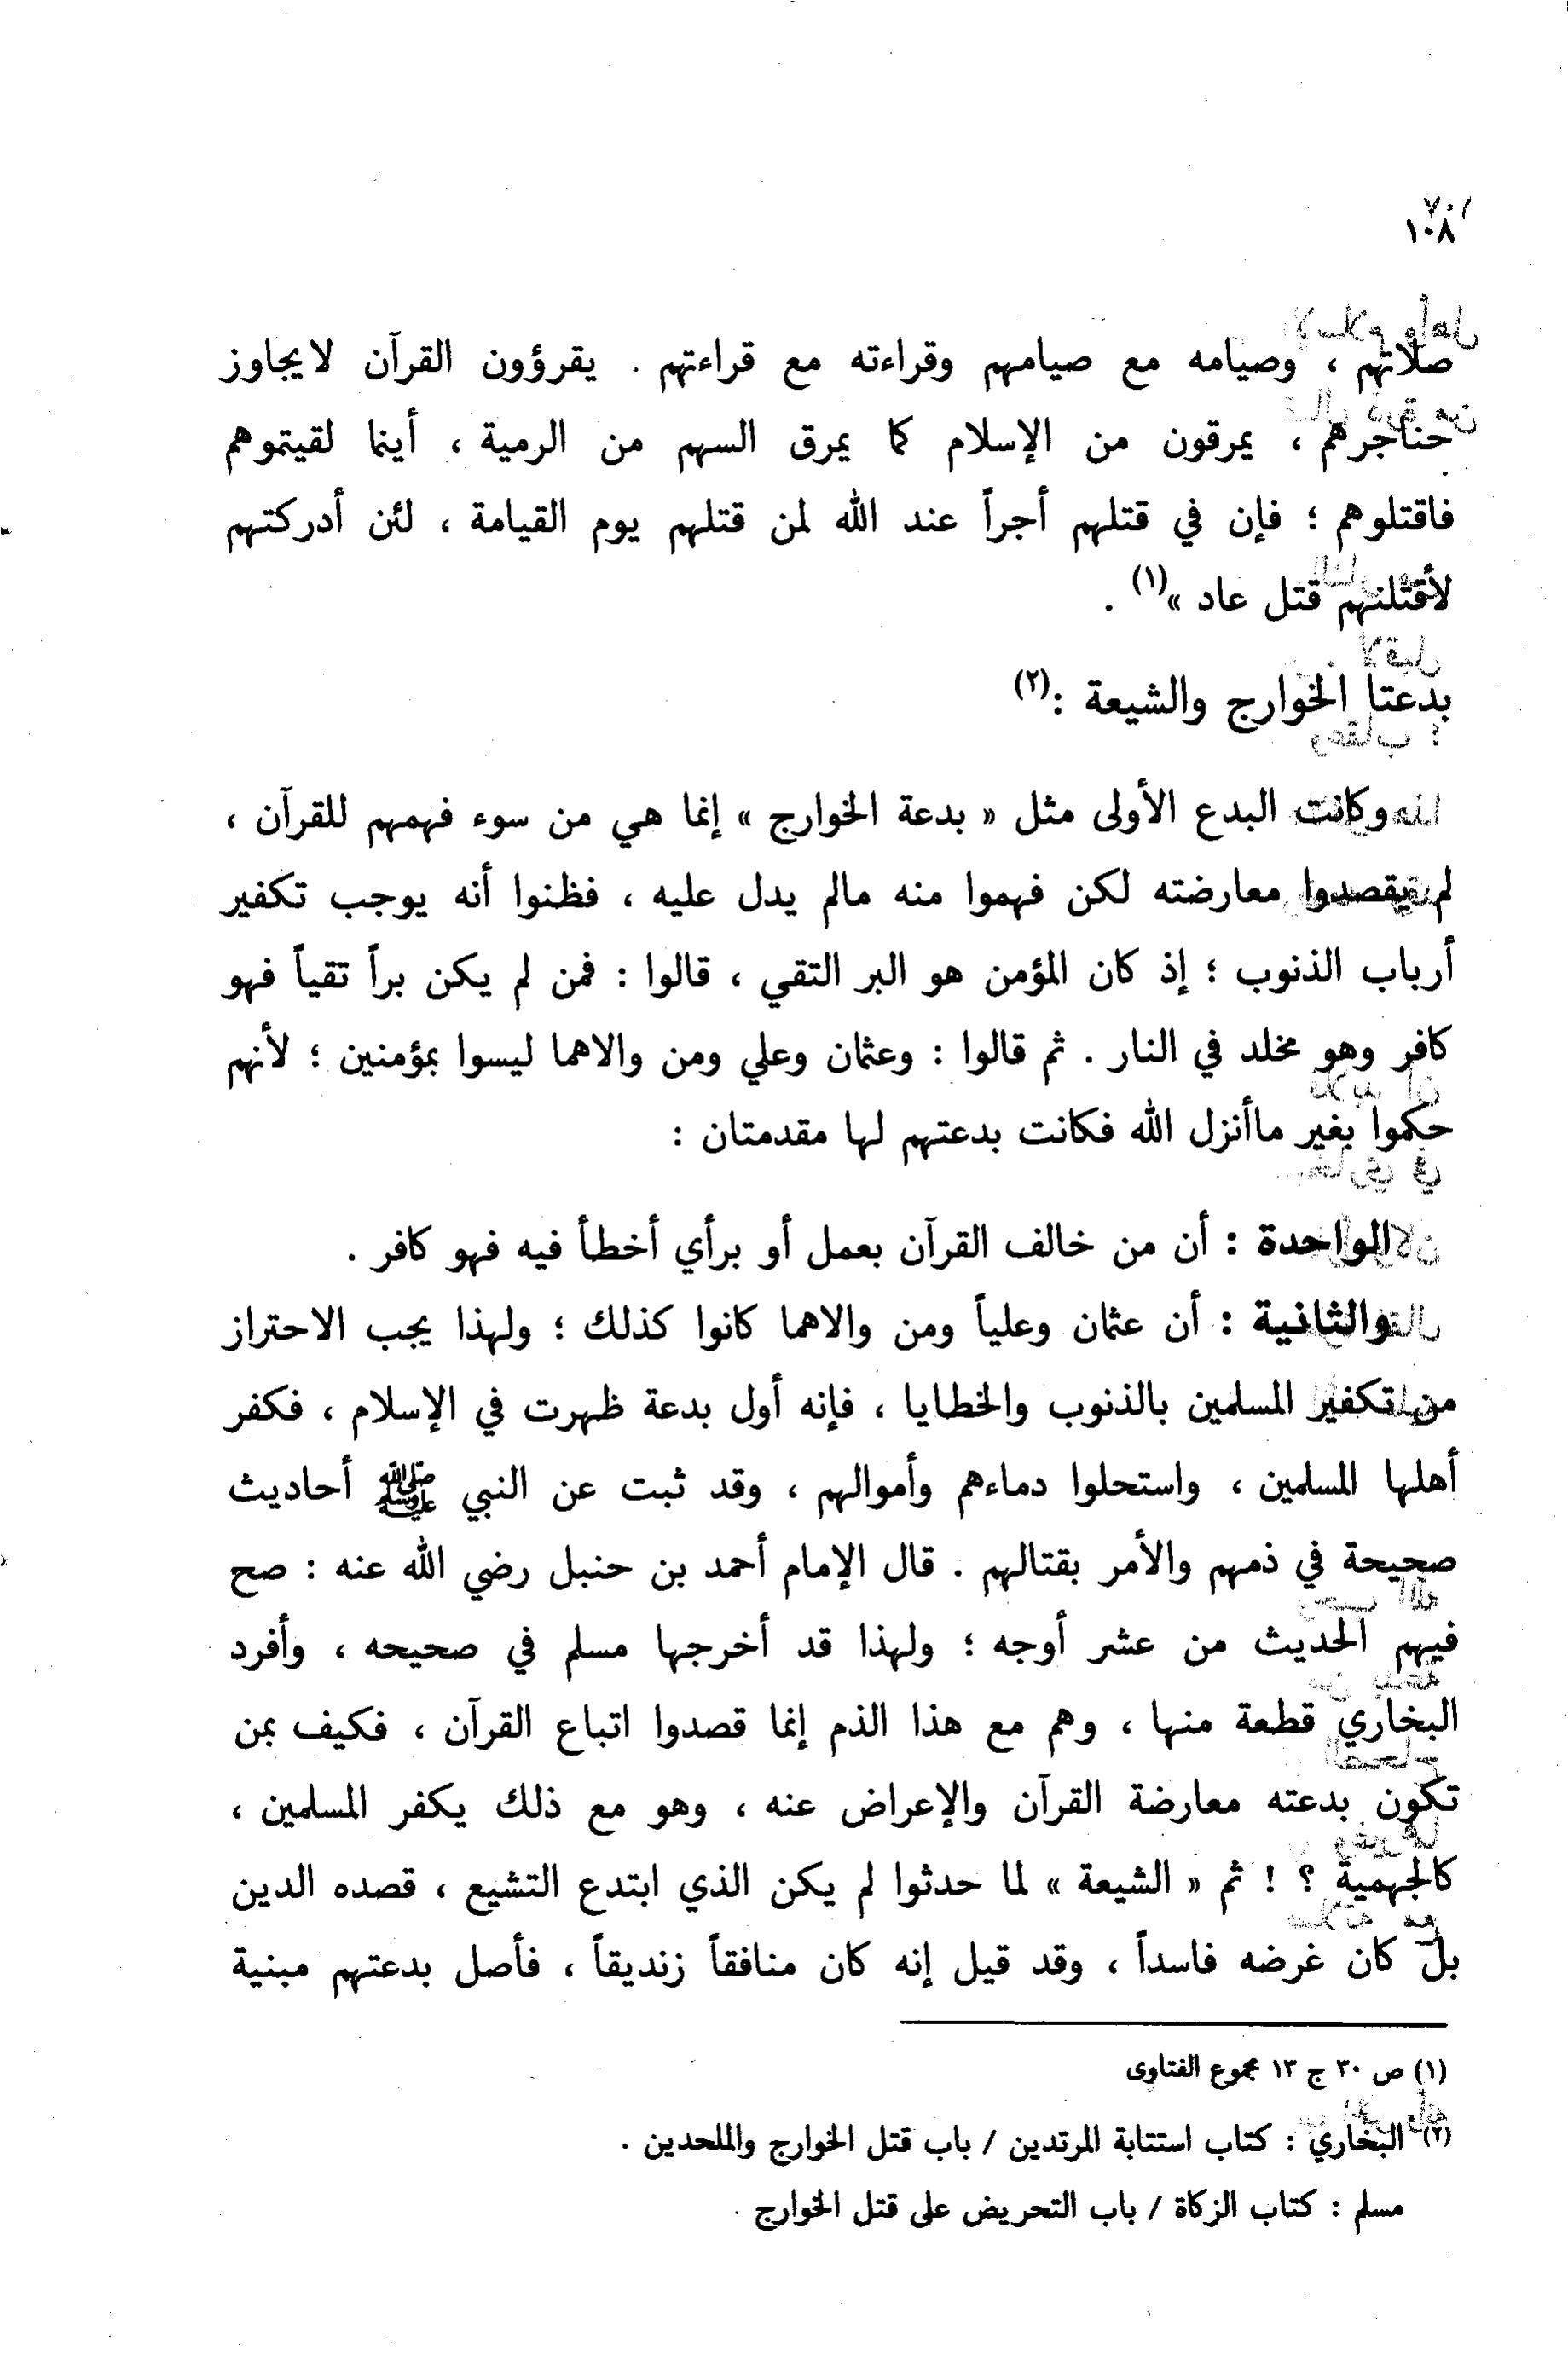 ١٠٨
صلاتهم ، وصيامه مع صيامهم وقراءته مع قراءتهم . يقرؤون القرآن لايجاوز
حناجرهم ، يمرقون من الإسلام كما يمرق السهم من الرمية ، أينما لقيتموهم
فاقتلوهم ؛ فإن في قتلهم أجراً عند الله لمن قتلهم يوم القيامة ، لئن أدركتهم
لأقتلنهم قتل عاد »(١) .
بدعتا الخوارج والشيعة :(٢)
وكانت البدع الأولى مثل « بدعة الخوارج » إنما هي من سوء فهمهم للقرآن ،
لم يقصدوا معارضته لكن فهموا منه مالم يدل عليه ، فظنوا أنه يوجب تكفير
أرباب الذنوب ؛ إذ كان المؤمن هو البر التقي ، قالوا : فمن لم يكن براً تقياً فهو
كافر وهو مخلد في النار . ثم قالوا : وعثمان وعلي ومن والاهما ليسوا بمؤمنين ؛ لأنهم
حكموا بغير ماأنزل الله فكانت بدعتهم لها مقدمتان :
الواحدة : أن من خالف القرآن بعمل أو برأي أخطأ فيه فهو كافر .
والثانية : أن عثمان وعلياً ومن والاهما كانوا كذلك ؛ ولهذا يجب الاحتراز
من تكفير المسلمين بالذنوب والخطايا ، فإنه أول بدعة ظهرت في الإسلام ، فكفر
أهلها المسلمين ، واستحلوا دماءهم وأموالهم ، وقد ثبت عن النبي ﷺ أحاديث
صحيحة في ذمهم والأمر بقتالهم . قال الإمام أحمد بن حنبل رضي الله عنه : صح
فيهم الحديث من عشر أوجه ؛ ولهذا قد أخرجها مسلم في صحيحه ، وأفرد
البخاري قطعة منها ، وهم مع هذا الذم إنما قصدوا اتباع القرآن ، فكيف بمن
تكون بدعته معارضة القرآن والإعراض عنه ، وهو مع ذلك يكفر المسلمين ،
كالجهمية ؟ ! ثم « الشيعة » لما حدثوا لم يكن الذي ابتدع التشيع ، قصده الدين
بل كان غرضه فاسداً ، وقد قيل إنه كان منافقاً زنديقاً ، فأصل بدعتهم مبنية
(١) ص ٣٠ ج ١٣ مجموع الفتاوى
(٢) البخاري : كتاب استتابة المرتدين / باب قتل الخوارج والملحدين .
مسلم : كتاب الزكاة / باب التحريض على قتل الخوارج .